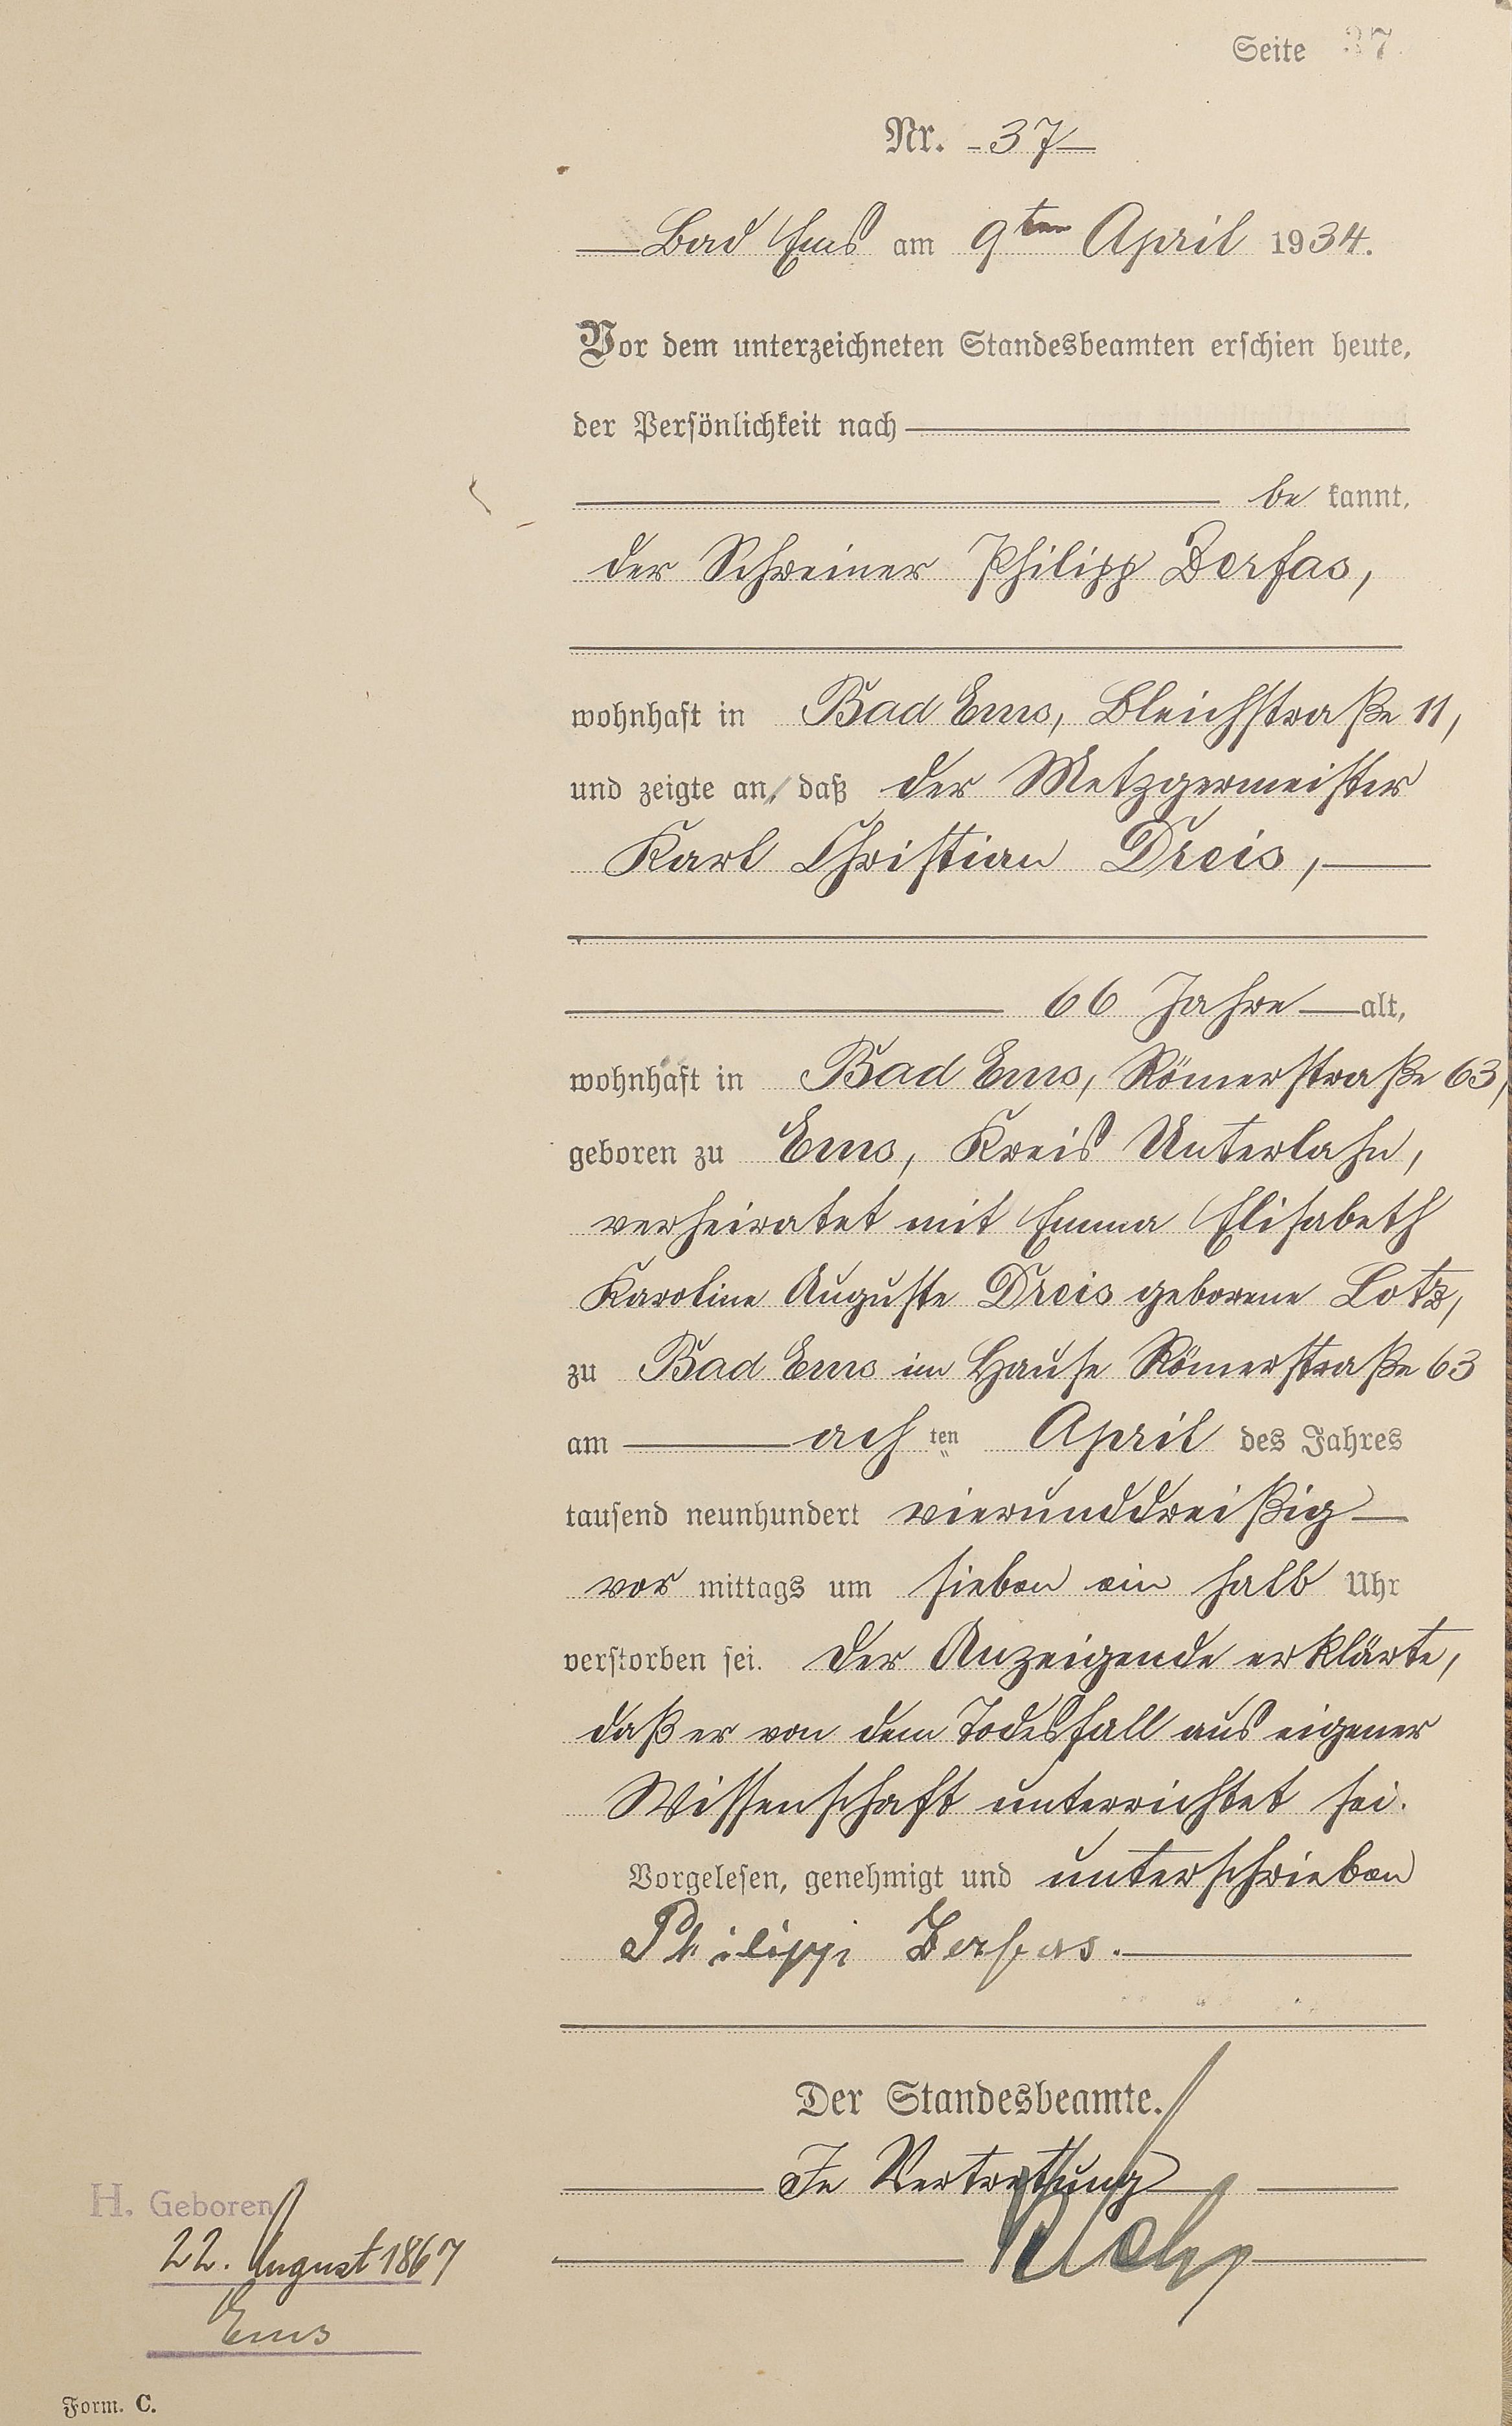 Seite 37.
Nr. 37
Bad Ems am 9ten April 1934.
Vor dem unterzeichneten Standesbeamten erschien heute,
der Persönlichkeit nach
be kannt,
der Schreiner Philipp Zerfas,
wohnhaft in Bad Ems, Bleichstraße 11,
und zeigte an, daß der Metzgermeister
Karl Christian Dreis,
66 Jahre alt,
wohnhaft in Bad Ems, Römerstraße 63,
geboren zu Ems, Kreis Unterlahn,
verheiratet mit Emma Elisabeth
Karoline Auguste Dreis geborene Lotz,
zu Bad Ems im Hause Römerstraße 63
am ach ten April des Jahres
tausend neunhundert vierunddreißig
vor mittags um sieben ein halb Uhr
verstorben sei. Der Anzeigende erklärte,
daß er von dem Todesfall aus eigener
Wissenschaft unterrichtet sei.
Vorgelesen, genehmigt und unterschrieben
Philipp Zerfas.
Der Standesbeamte.
In Vertretung
H. Geboren
22. August 1867
Ems
Form. C.